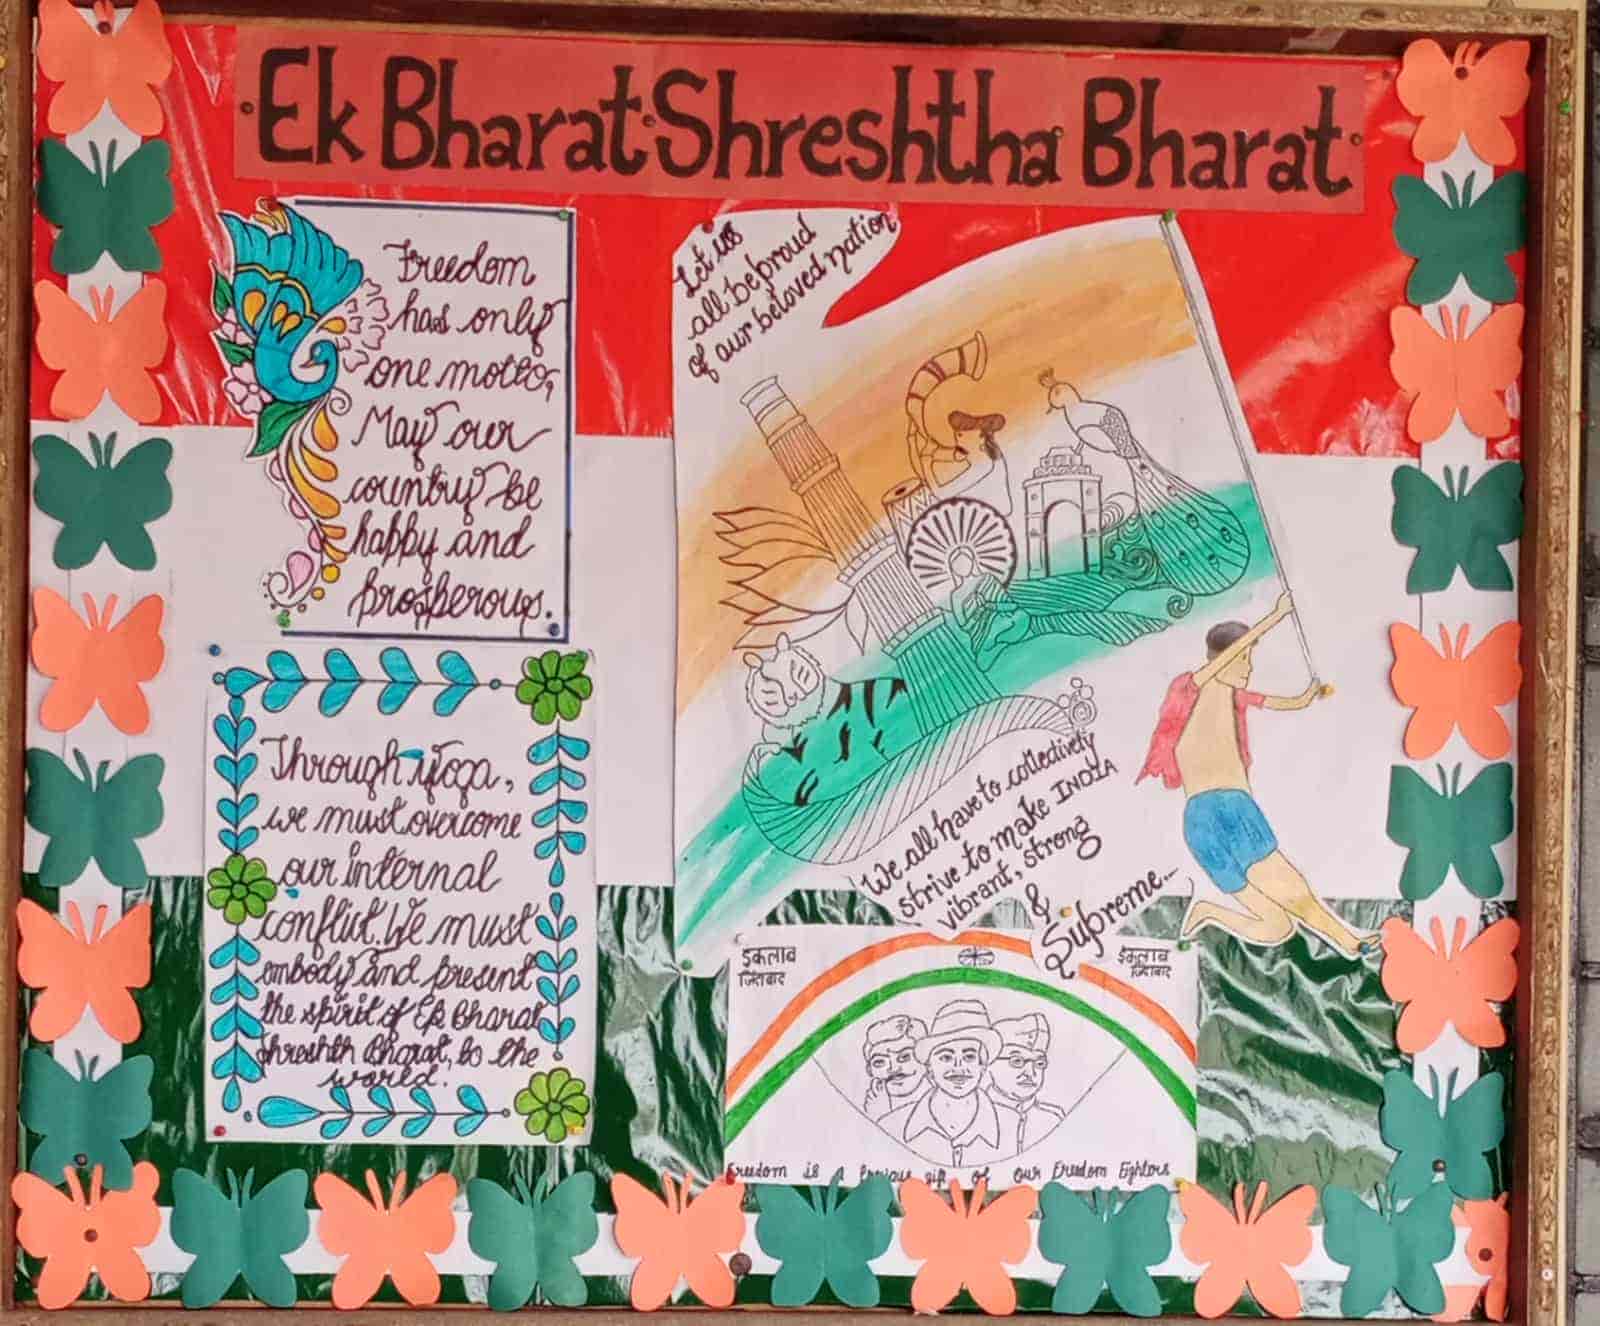 Ek Bharat Shreshtha Bharat
Freedom
has only
one motto,
May our
country be
happy and
prosperous.
Let us
all be proud
of our beloved nation
Through yoga,
we must overcome
our internal
conflict. We must
embody and present
the spirit of Ek Bharat
Shreshth Bharat, to the
world.
We all have to collectively
strive to make INDIA
vibrant, strong
&
Supreme...
इंकलाब
जिंदाबाद
इंकलाब
जिंदाबाद
Freedom is a gift of our Freedom Fighters